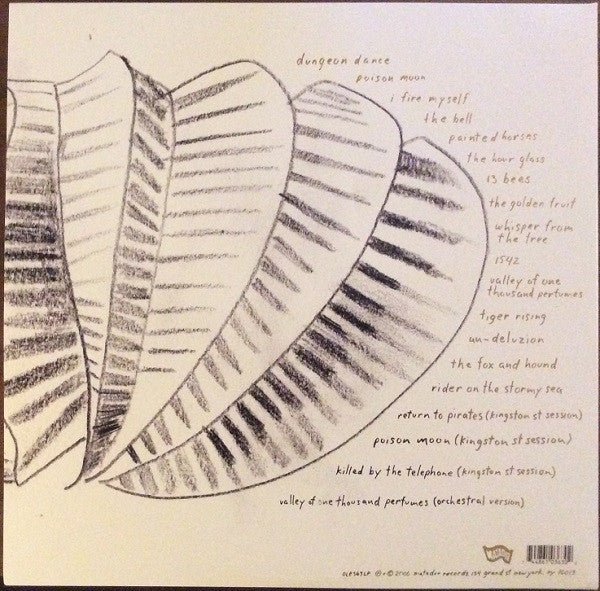 dungeon dance
poison moon
i fire myself
the bell
painted horses
the hour glass
13 bees
the golden fruit
whisper from
the tree
1542
valley of one
thousand perfumes
tiger rising
un-deluzion
the fox and hound
rider on the stormy sea
return to pirates (kingston st session)
poison moon (kingston st session)
killed by the telephone (kingston st session)
valley of one thousand perfumes (orchestral version)
matador records 304 grand st new york, ny 10013